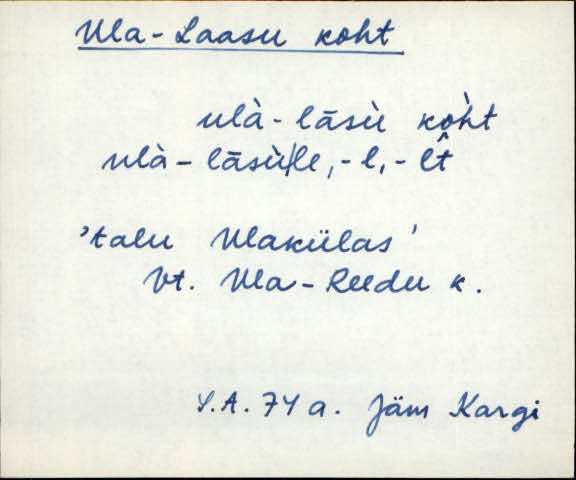 Ula-Laasu koht
ulà-lāsù kòht
ulà-lāsù/le, -l, -lt̂
'talu Ulakülas'
Vt. Ula-Reedu k.
S.A. 74 a. Jäm Kargi